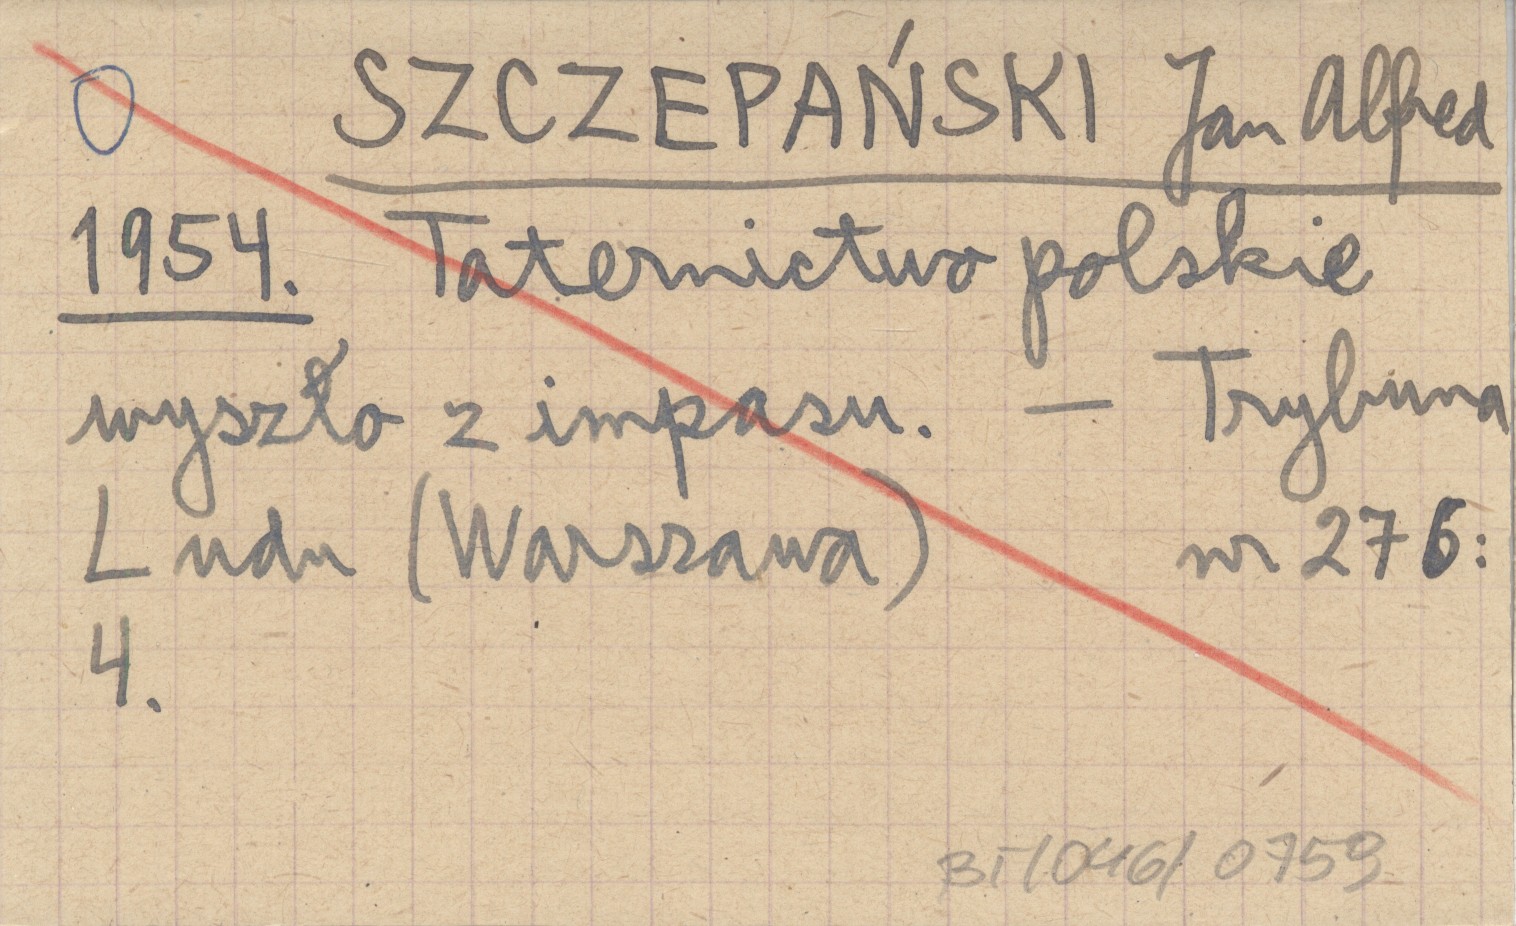 O SZCZEPAŃSKI Jan Alfred
1954. Taternictwo polskie
wyszło z impasu. — Trybuna
Ludu (Warszawa) nr 276:
4.
BT/046/0759